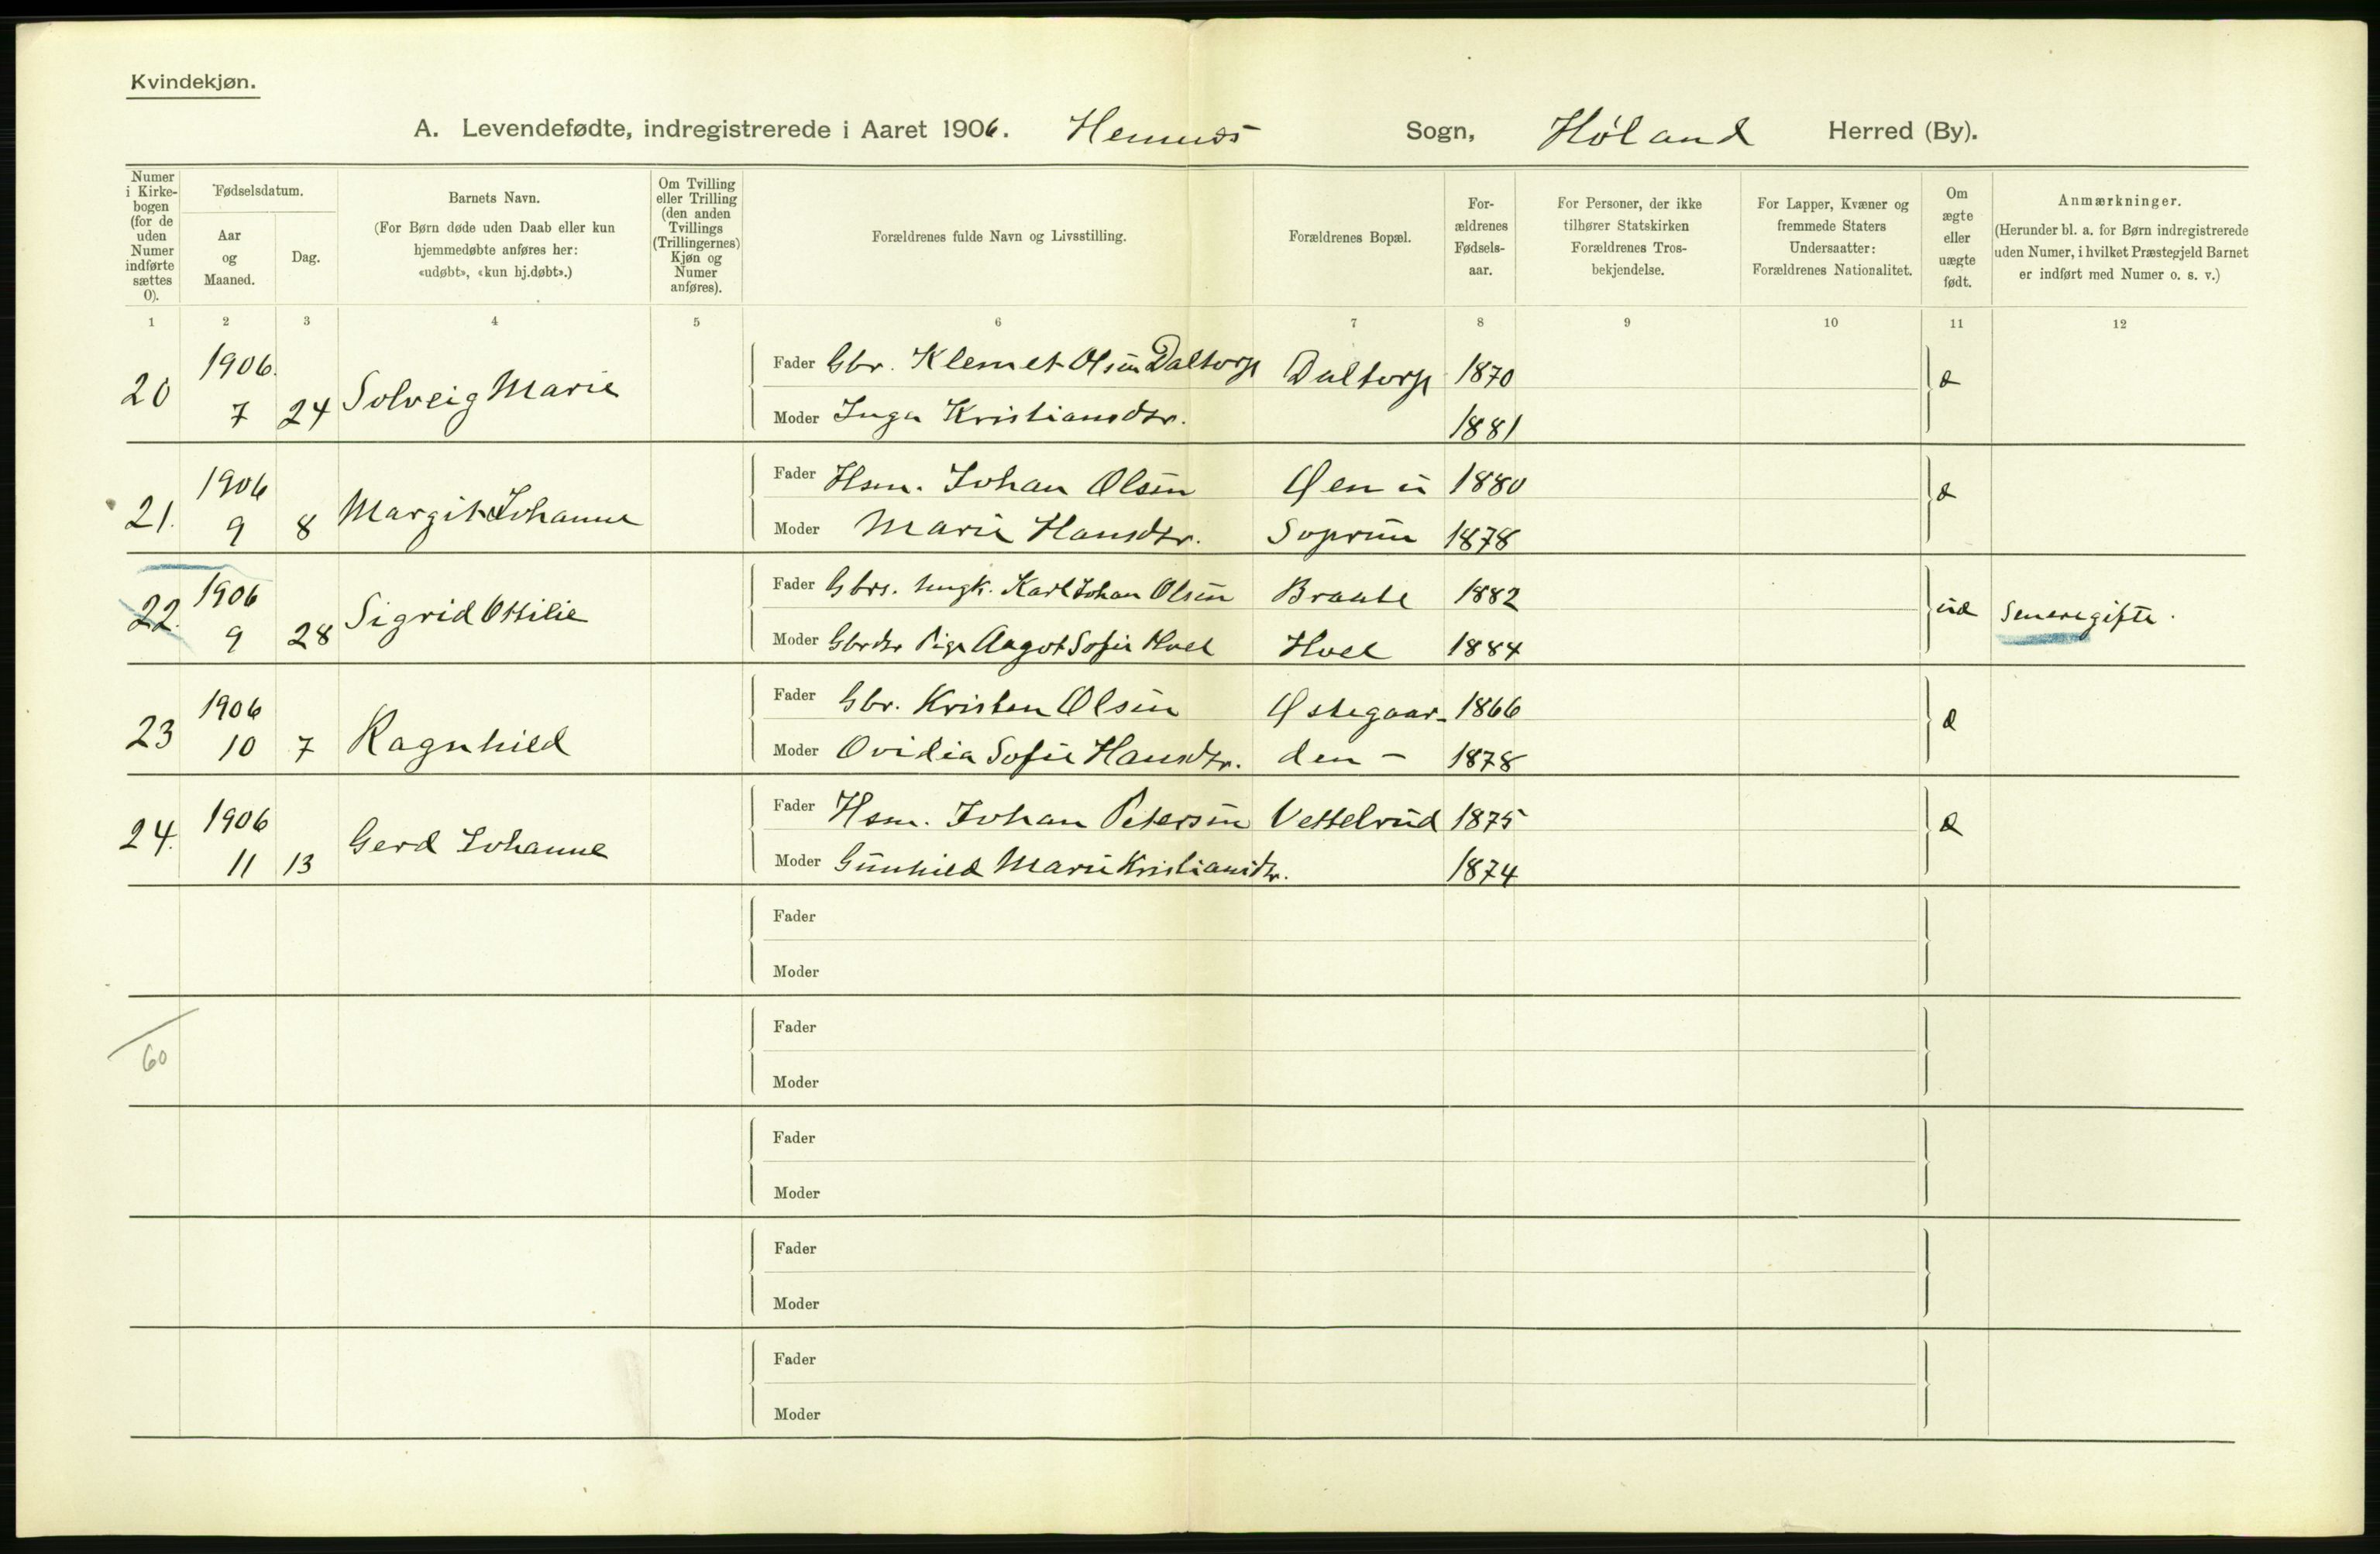 Kvindekjøn.
A. Levendefødte, indregistrerede i Aaret 1906. Hemnes Sogn, Høland Herred (By).
Numer i Kirkebogen (for de uden Numer indførte sættes 0).
Fødselsdatum.
Aar og Maaned.
Dag.
Barnets Navn.
(For Børn døde uden Daab eller kun hjemmedøbte anføres her: «udøbt», «kun hj.døbt».)
Om Tvilling eller Trilling (den anden Tvillings (Trillingernes) Kjøn og Numer anføres).
Forældrenes fulde Navn og Livsstilling.
Forældrenes Bopæl.
Forældrenes Fødselsaar.
For Personer, der ikke tilhører Statskirken Forældrenes Trosbekjendelse.
For Lapper, Kvæner og fremmede Staters Undersaatter: Forældrenes Nationalitet.
Om ægte eller uægte født.
Anmærkninger.
(Herunder bl. a. for Børn indregistrerede uden Numer, i hvilket Præstegjeld Barnet er indført med Numer o. s. v.)
1 2 3 4 5 6 7 8 9 10 11 12
20 1906. 7 24 Solveig Marie
Fader Gbr. Klemet Olsen Daltorp Daltorp 1870 æ
Moder Inga Kristiansdtr. 1881
21. 1906 9 8 Margit Johanne
Fader Hsm. Johan Olsen 1880 æ
Moder Marie Hansdtr. 1878
22. 1906 9 28 Sigrid Ottilie
Fader Gbrs. Ungk. Karl Johan Olsen Braate 1882 uæ Senere gifte.
Moder Gbrdtr Pige Aagot Sofie Hoel Hoel 1884
23 1906 10 7 Ragnhild
Fader Gbr. Kristen Olsen Østegaar- 1866 æ
Moder Ovidia Sofie Hansdtr. den - 1878
24. 1906 11 13 Gerd Johanne
Fader Hsm. Johan Petersen Vettelrud 1875 æ
Moder Gunhild Marie Kristiansdtr. 1874
Fader
Moder
Fader
60
Moder
Fader
Moder
Fader
Moder
Fader
Moder